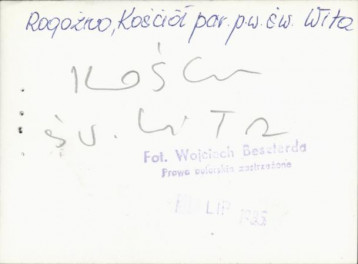 Rogoźno, Kościół par. p.w. św. Wita
KOŚC
ŚW. WITA
Fot. Wojciech Beszterda
Prawa autorskie zastrzeżone
LIP